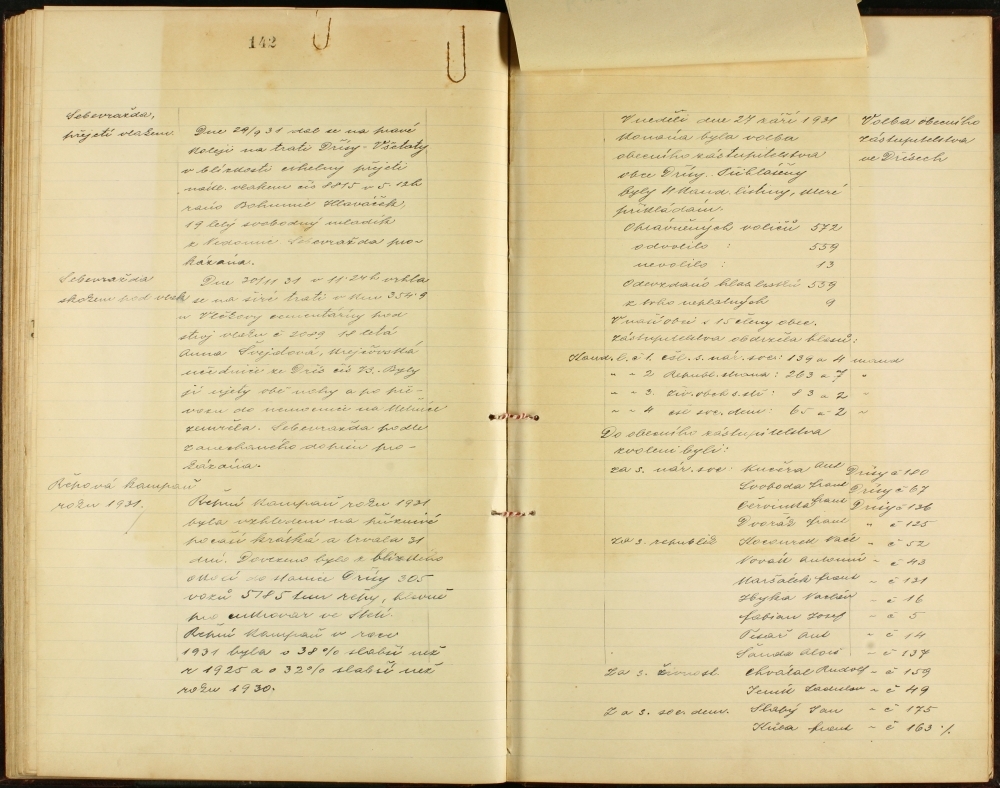 142
Sebevražda,
přejetí vlakem
Dne 29/9 31 dal se na pravé
koleji na trati Dřísy - Všetaty
v blízkosti cihelny přejeti
vlakem čís 8815 v 5.12h
ráno Bohumil Hlaváček,
19 letý svobodný mladík
z Nedomic. Sebevražda pro-
kázána.
Sebevražda
skokem pod vlak
Dne 30/11 31 v 11.24h vrhla
se na širé trati v km 354.9
u Vlčkovy cementárny pod
stroj vlaku č 2089 18 letá
Anna Švejdová, krejčovská
učednice ze Dřís čís 73. Byly
jí ujety obě nohy a po pře-
vozu do nemocnice na Mělníce
zemřela. Sebevražda podle
zanechaného dopisu pro-
kázána.
Řepová kampaň
roku 1931.
Řepní kampaň roku 1931
byla vzhledem na příznivé
počasí krátká a trvala 31
dní. Dovezeno bylo z blízkého
okolí do stanice Dřísy 305
vozů 5185 tun řepy, hlavně
pro cukrovar ve
Řepní kampaň v roce
1931 byla o 38% slabší než
r 1925 a o 32% slabší než
roku 1930.
V neděli dne 27 září 1931
konána byla volba
obecního zastupitelstva
obce Dřísy. Přihlášeny
byly 4 kand. listiny, které
přikládám.
Volba obecního
zastupitelstva
ve Dřísech
Oprávněných voličů 572
odvolilo : 559
nevolilo : 13
Odevzdáno hlas. lístků 559
z toho neplatných 9
V naší obci s 15 členy obec.
zastupitelstva obdržela hlasů:
Kand. l. č 1. čsl. s. nár. soc: 139 a 4 mand
" - 2 Republ. strana: 263 a 7 "
" - 3. živ. obch. stř: 83 a 2 "
" - 4 čsl soc. dem: 65 a 2 "
Do obecního zastupitelstva
zvoleni byli:
za s. nár. soc: Kučera Ant Dřísy č 180
Svoboda Frant Dřísy č 67
Červinka Frant Dřísy č 136
Dvořák Frant " č 125
Za s. republik Kocourek Vác - č 52
Novák Antonín - č 43
Maršálek Frant - č 131
Zbyka Václav - č 16
Fabian Josef - č 5
Tesař Ant - č 14
Šanda Alois - č 137
Za s. živnost. Chvátal Rudolf - č 159
Ladislav - č 49
Za s. soc. dem. Slabý Jan - č 175
Frant - č 163 ./.